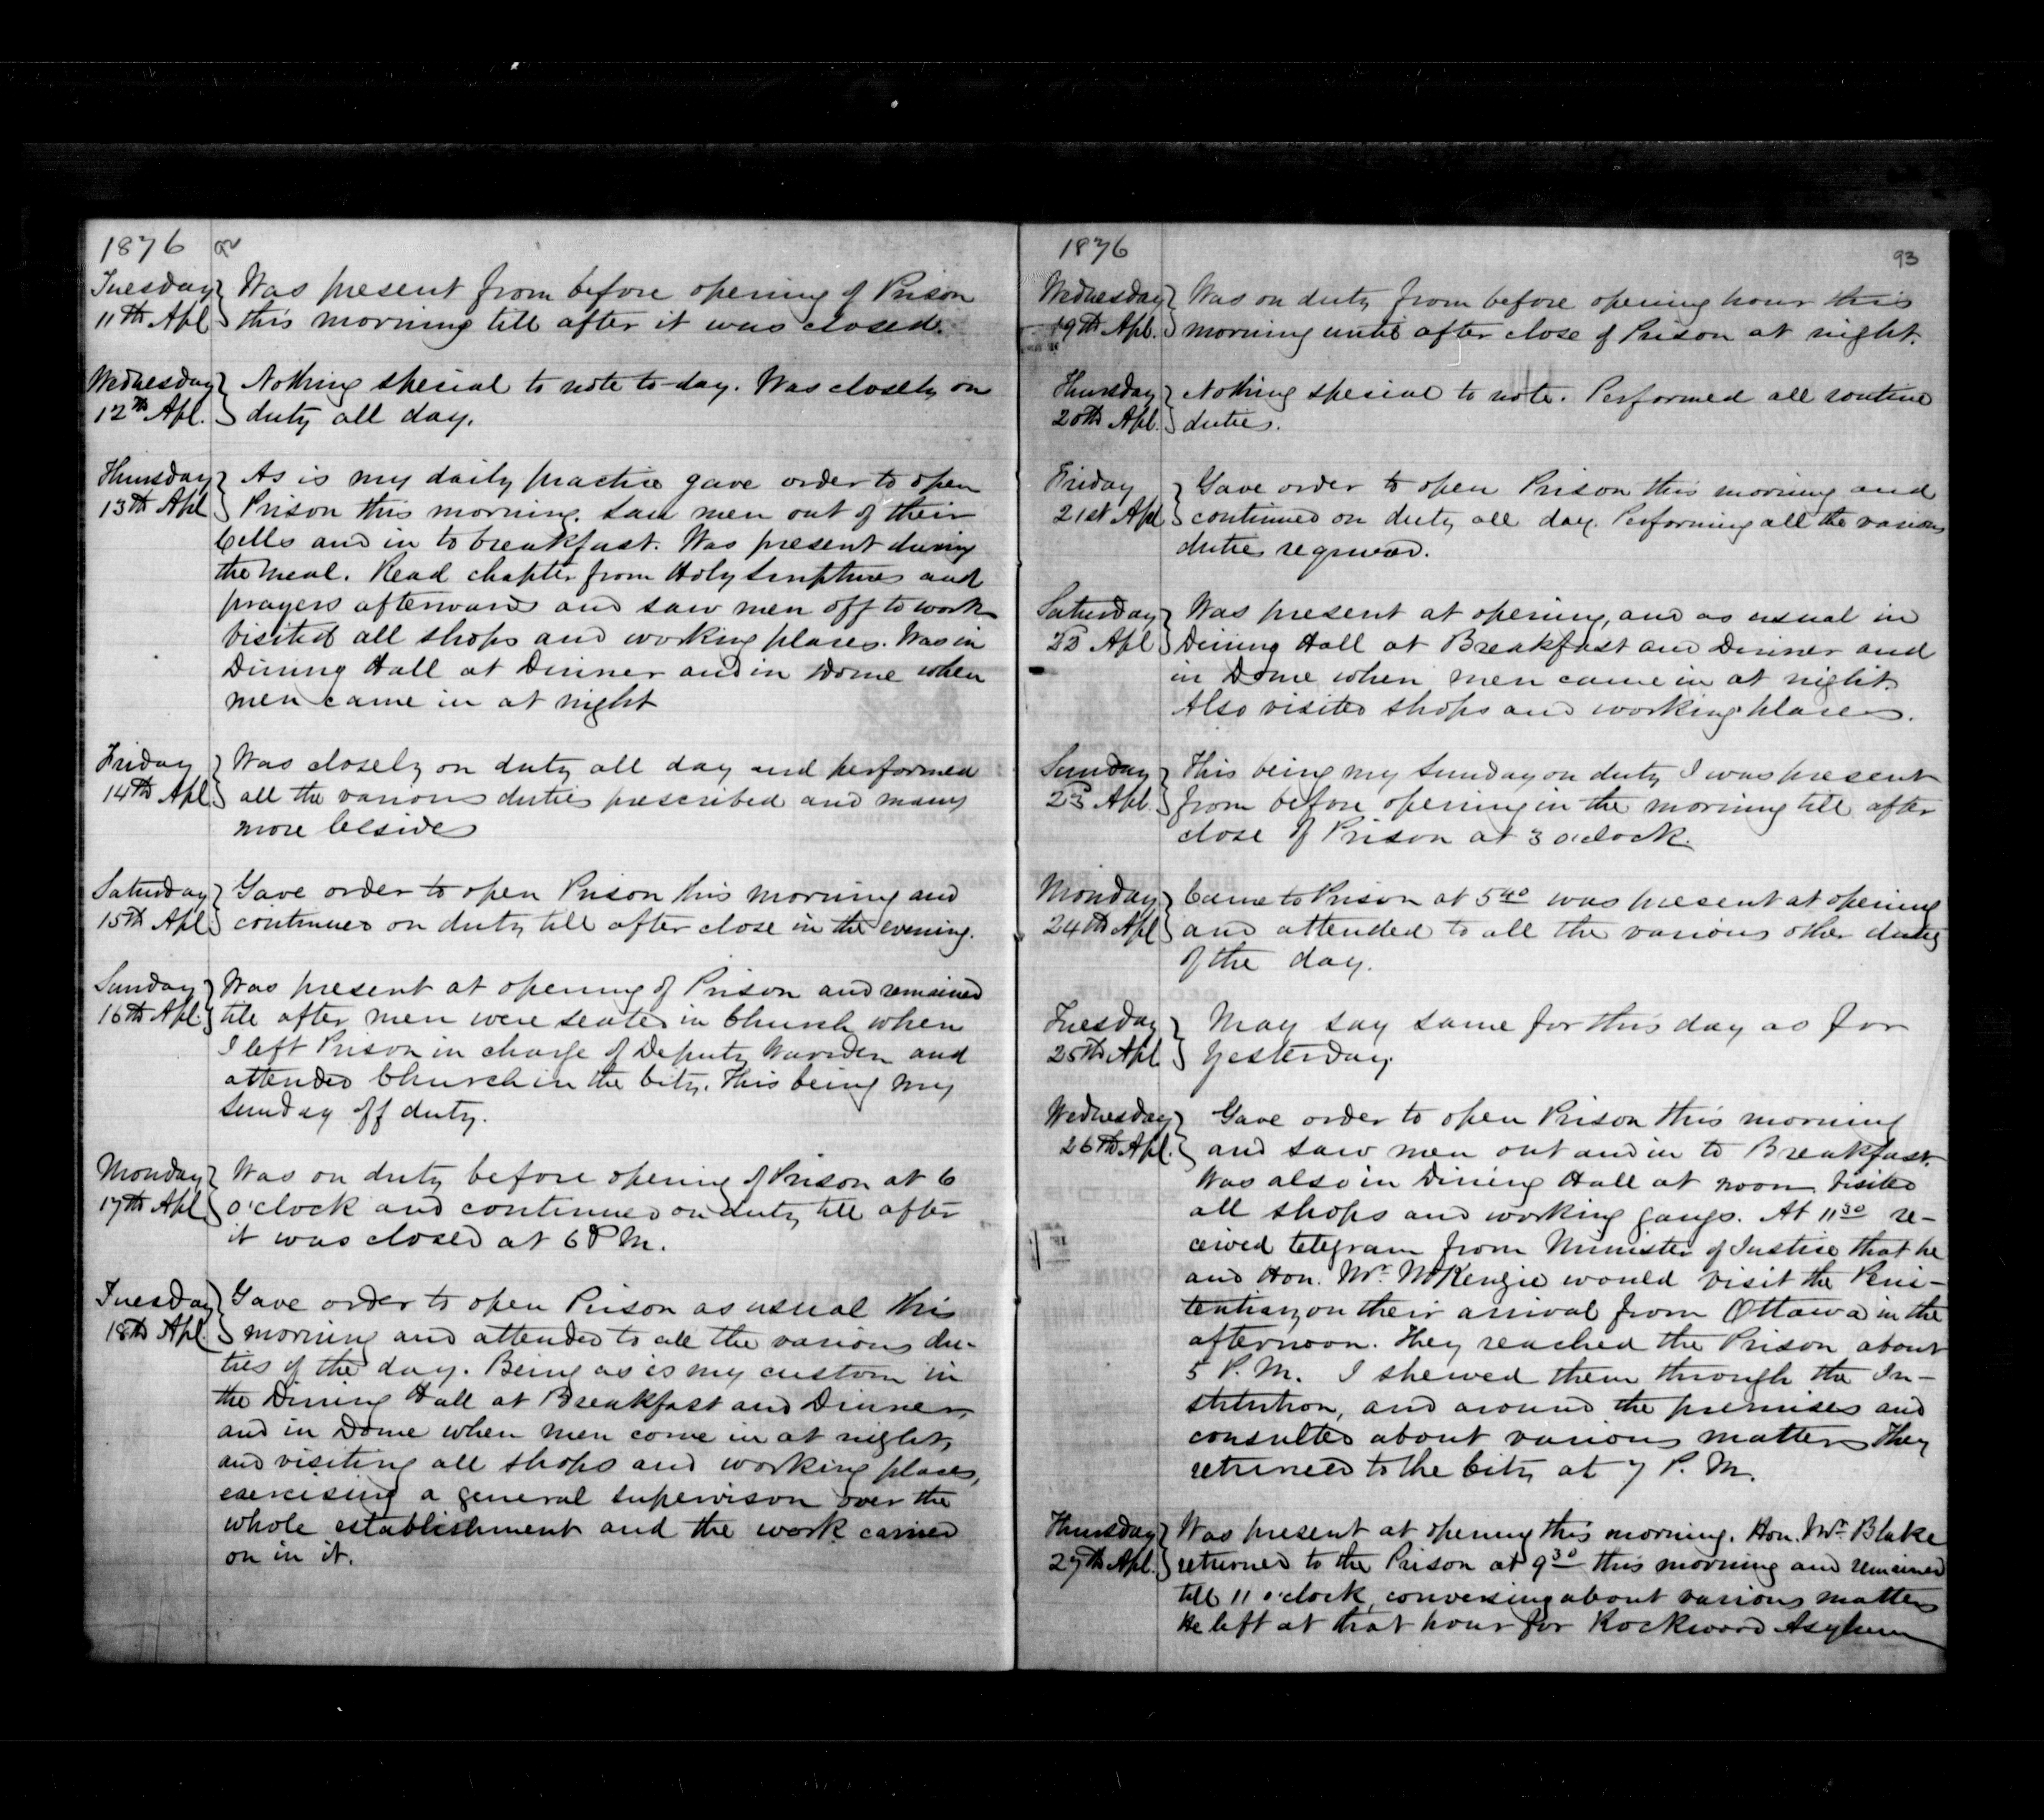 1876
Tuesday Was present from before opening of Prison
11th Apl this morning till after it was closed.
Wednesday Nothing special to note to-day. Was closely on
12th Apl. duty all day.
Thursday As is my daily practice gave order to open
13th Apl Prison this morning. Saw men out of their
Cells and in to breakfast. Was present during
the meal. Read chapter from Holy Scriptures and
prayers afterwards and saw men off to work
Visited all shops and working places. Was in
Dining Hall at Dinner and in Dome when
men came in at night
Friday Was closely on duty all day and performed
14th Apl all the various duties prescribed and many
more besides
Saturday Gave order to open Prison this morning and
15th Apl continued on duty till after close in the evening.
Sunday Was present at opening of Prison and remained
16th Apl. till after men were seated in Church when
I left Prison in charge of Deputy Warden and
attended Church in the City. This being my
Sunday off duty.
Monday Was on duty before opening of Prison at 6
17th Apl o'clock and continued on duty till after
it was closed at 6 P.M.
Tuesday Gave order to open Prison as usual this
18th Apl. morning and attended to all the various du-
ties of the day. Being as is my custom in
the Dining Hall at Breakfast and Dinner,
and in Dome when men come in at night,
and visiting all shops and working places,
exercising a general supervison over the
whole establishment and the work carried
on in it.
1876
93
Wednesday Was on duty from before opening hour this
19th Apl. morning until after close of Prison at night.
Thursday Nothing special to note. Performed all routine
20th Apl. duties.
Friday Gave order to open Prison this morning and
21st Apl continued on duty all day. Performing all the various
duties required.
Saturday Was present at opening, and as usual in
22d Apl Dining Hall at Breakfast and Dinner and
in Dome when men came in at night.
Also visited shops and working places.
Sunday This being my Sunday on duty I was present
23d Apl. from before opening in the morning till after
close of Prison at 3 o'clock.
Monday Came to Prison at 5 40 was present at opening
24th Apl and attended to all the various other duties
of the day.
Tuesday May say same for this day as for
25th Apl yesterday.
Wednesday Gave order to open Prison this morning
26th Apl. and saw men out and in to Breakfast.
Was also in Dining Hall at noon. Visited
all shops and working gangs. At 11 30 re-
ceived telegram from Minister of Justice that he
and Hon. Mr. McKenzie would visit the Peni-
tentiary on their arrival from Ottawa in the
afternoon. They reached the Prison about
5 P.M. I shewed them through the In-
stitution, and around the premises and
consulted about various matters They
returned to the City at 7 P.M.
Thursday Was present at opening this morning. Hon. Mr. Blake
27th Apl. returned to the Prison at 9 30 this morning and remained
till 11 o'clock, conversing about various matters
He left at that hour for Rockwood Asylum